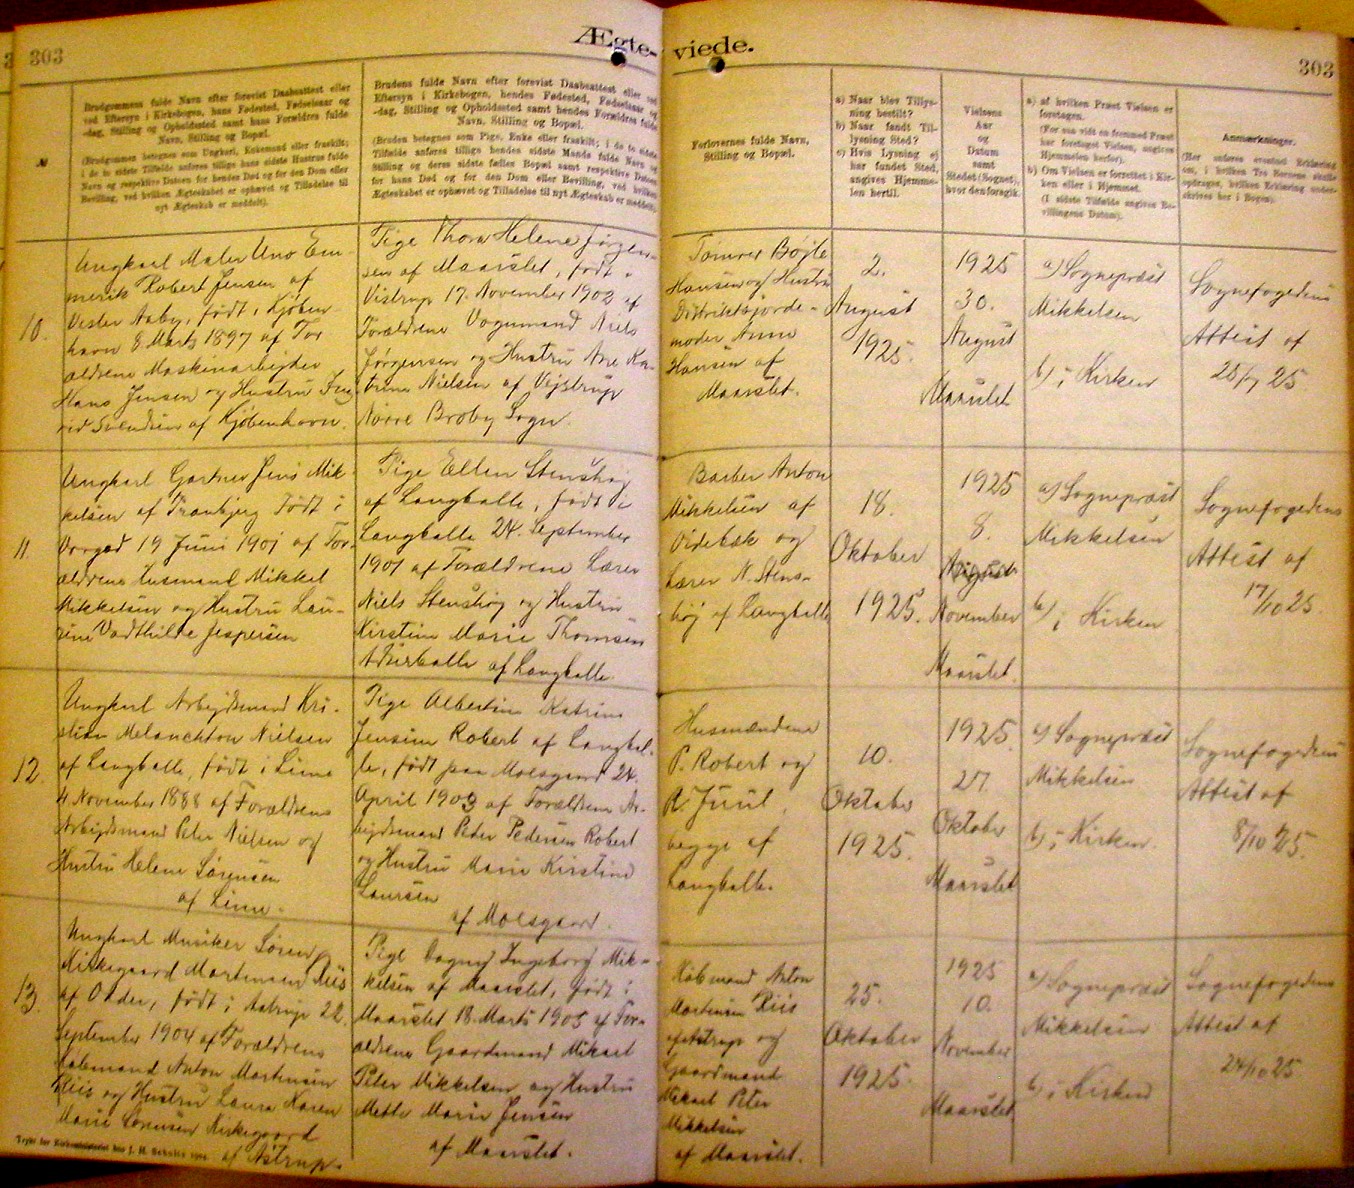 303
Ægte-
viede.
303
Brudgommens fulde Navn efter forevist Daabsattest eller
ved Eftersyn i Kirkebogen, hans Fødested, Fødselsaar og
-dag, Stilling og Opholdssted samt hans Forældres fulde
Navn, Stilling og Bopæl.
(Brudgommen betegnes som Ungkarl, Enkemand eller fraskilt;
i de to sidste Tilfælde anføres tillige hans sidste Hustrus fulde
Navn og respektive Datoen for hendes Død og for den Dom eller
Bevilling, ved hvilken Ægteskabet er ophævet og Tilladelse til
nyt Ægteskab er meddelt).
Brudens fulde Navn efter forevist Daabsattest eller ved
Eftersyn i Kirkebogen, hendes Fødested, Fødselsaar og
-dag, Stilling og Opholdssted samt hendes Forældres fulde
Navn, Stilling og Bopæl.
(Bruden betegnes som Pige, Enke eller fraskilt; i de to sidste
Tilfælde anføres tillige hendes sidste Mands fulde Navn og
Stilling og deres sidste fælles Bopæl samt respektive Datoen
for hans Død og for den Dom eller Bevilling, ved hvilken
Ægteskabet er ophævet og Tilladelse til nyt Ægteskab er meddelt).
Forlovernes fulde Navn,
Stilling og Bopæl.
a) Naar blev Tillys-
ning bestilt?
b) Naar fandt Til-
lysning Sted?
c) Hvis Lysning ej
har fundet Sted,
angives Hjemme-
len hertil.
Vielsens
Aar
og
Datum
samt
Stedet (Sognet),
hvor den foregik.
a) af hvilken Præst Vielsen er
foretagen.
(For saa vidt en fremmed Præst
har foretaget Vielsen, angives
Hjemmelen herfor).
b) Om Vielsen er forrettet i Kir-
ken eller i Hjemmet.
(I sidste Tilfælde angives Be-
villingens Datum).
Anmærkninger.
(Her anføres eventuel Erklæring
om, i hvilken Tro Børnene skulle
opdrages, hvilken Erklæring under-
skrives her i Bogen).
10.
Ungkarl Maler Uno Em-
merik Robert Jensen af
Vester Aaby, født i Kjøben-
havn 8 Marts 1897 af For
ældrene Maskinarbejder
Hans Jensen og Hustru Ing-
rid Svendsen af Kjøbenhavn.
Pige Thora Helene Jørgen-
sen af Maarslet, født i
Vistrup 17. November 1902 af
Forældrene Vognmand Niels
Jørgensen og Hustru Ane Ka-
trine Nielsen af Vejstrup
Nørre Broby Sogn.
Tømrer Bøjle
Hansen og Hustru
Distriktsjorde-
moder Anna
Hansen af
Maarslet.
2.
August
1925.
1925
30.
August
Maarslet
a) Sognepræst
Mikkelsen
b) i Kirken
Sognefogedens
Attest af
25/7 25
11.
Ungkarl Gartner Jens Mik-
kelsen af Tranbjerg født i
Vorgod 19 Juni 1901 af For-
ældrene Husmand Mikkel
Mikkelsen og Hustru Lau-
rine Jespersen
Pige Ellen Stenshøj
af Langballe, født i
Langballe 24. September
1901 af Forældrene Lærer
Niels Stenshøj og Hustru
Kirstine Marie Thomsen
af Langballe.
Barber Anton
Mikkelsen af
Videbæk og
Lærer N. Stens-
høj af Langballe
18.
Oktober
1925.
1925
8.
August
November
Maarslet.
a) Sognepræst
Mikkelsen
b) i Kirken
Sognefogedens
Attest af
17/10 25.
12.
Ungkarl Arbejdsmand Kri-
stian Melanchton Nielsen
af Langballe, født i Lime
4 November 1888 af Forældrene
Arbejdsmand Peter Nielsen og
Hustru Helene Sørensen
af Lime.
Pige Albertine Katrine
Jensine Robert af Langbal-
le, født paa Moesgaard 24.
April 1903 af Forældrene Ar-
bejdsmand Peter Pedersen Robert
og Hustru Marie Kirstine
Laursen
af Moesgaard.
Husmændene
P. Robert og
R. Juul,
begge af
Langballe.
10.
Oktober
1925.
1925.
27.
Oktober
Maarslet
a) Sognepræst
Mikkelsen
b) i Kirken.
Sognefogedens
Attest af
8/10 25.
13.
Ungkarl Musiker Søren
Kirkegaard Martensen Riis
af Odder, født i Astrup 22.
September 1904 af Forældrene
Købmand Anton Martensen
Riis og Hustru Laura Karen
Marie Sørensen Kirkegaard
af Astrup.
Pige Dagny Ingeborg Mik-
kelsen af Maarslet, født i
Maarslet 18. Marts 1905 af For-
ældrene Gaardmand Mikael
Peter Mikkelsen og Hustru
Mette Marie Jensen
af Maarslet.
Købmand Anton
Martensen Riis
af Astrup og
Gaardmand
Mikael Peter
Mikkelsen
af Maarslet.
25.
Oktober
1925.
1925
10.
November
Maarslet
a) Sognepræst
Mikkelsen
b) i Kirken
Sognefogedens
Attest af
24/10 25
Trykt for Kirkeministeriet hos J. H. Schultz